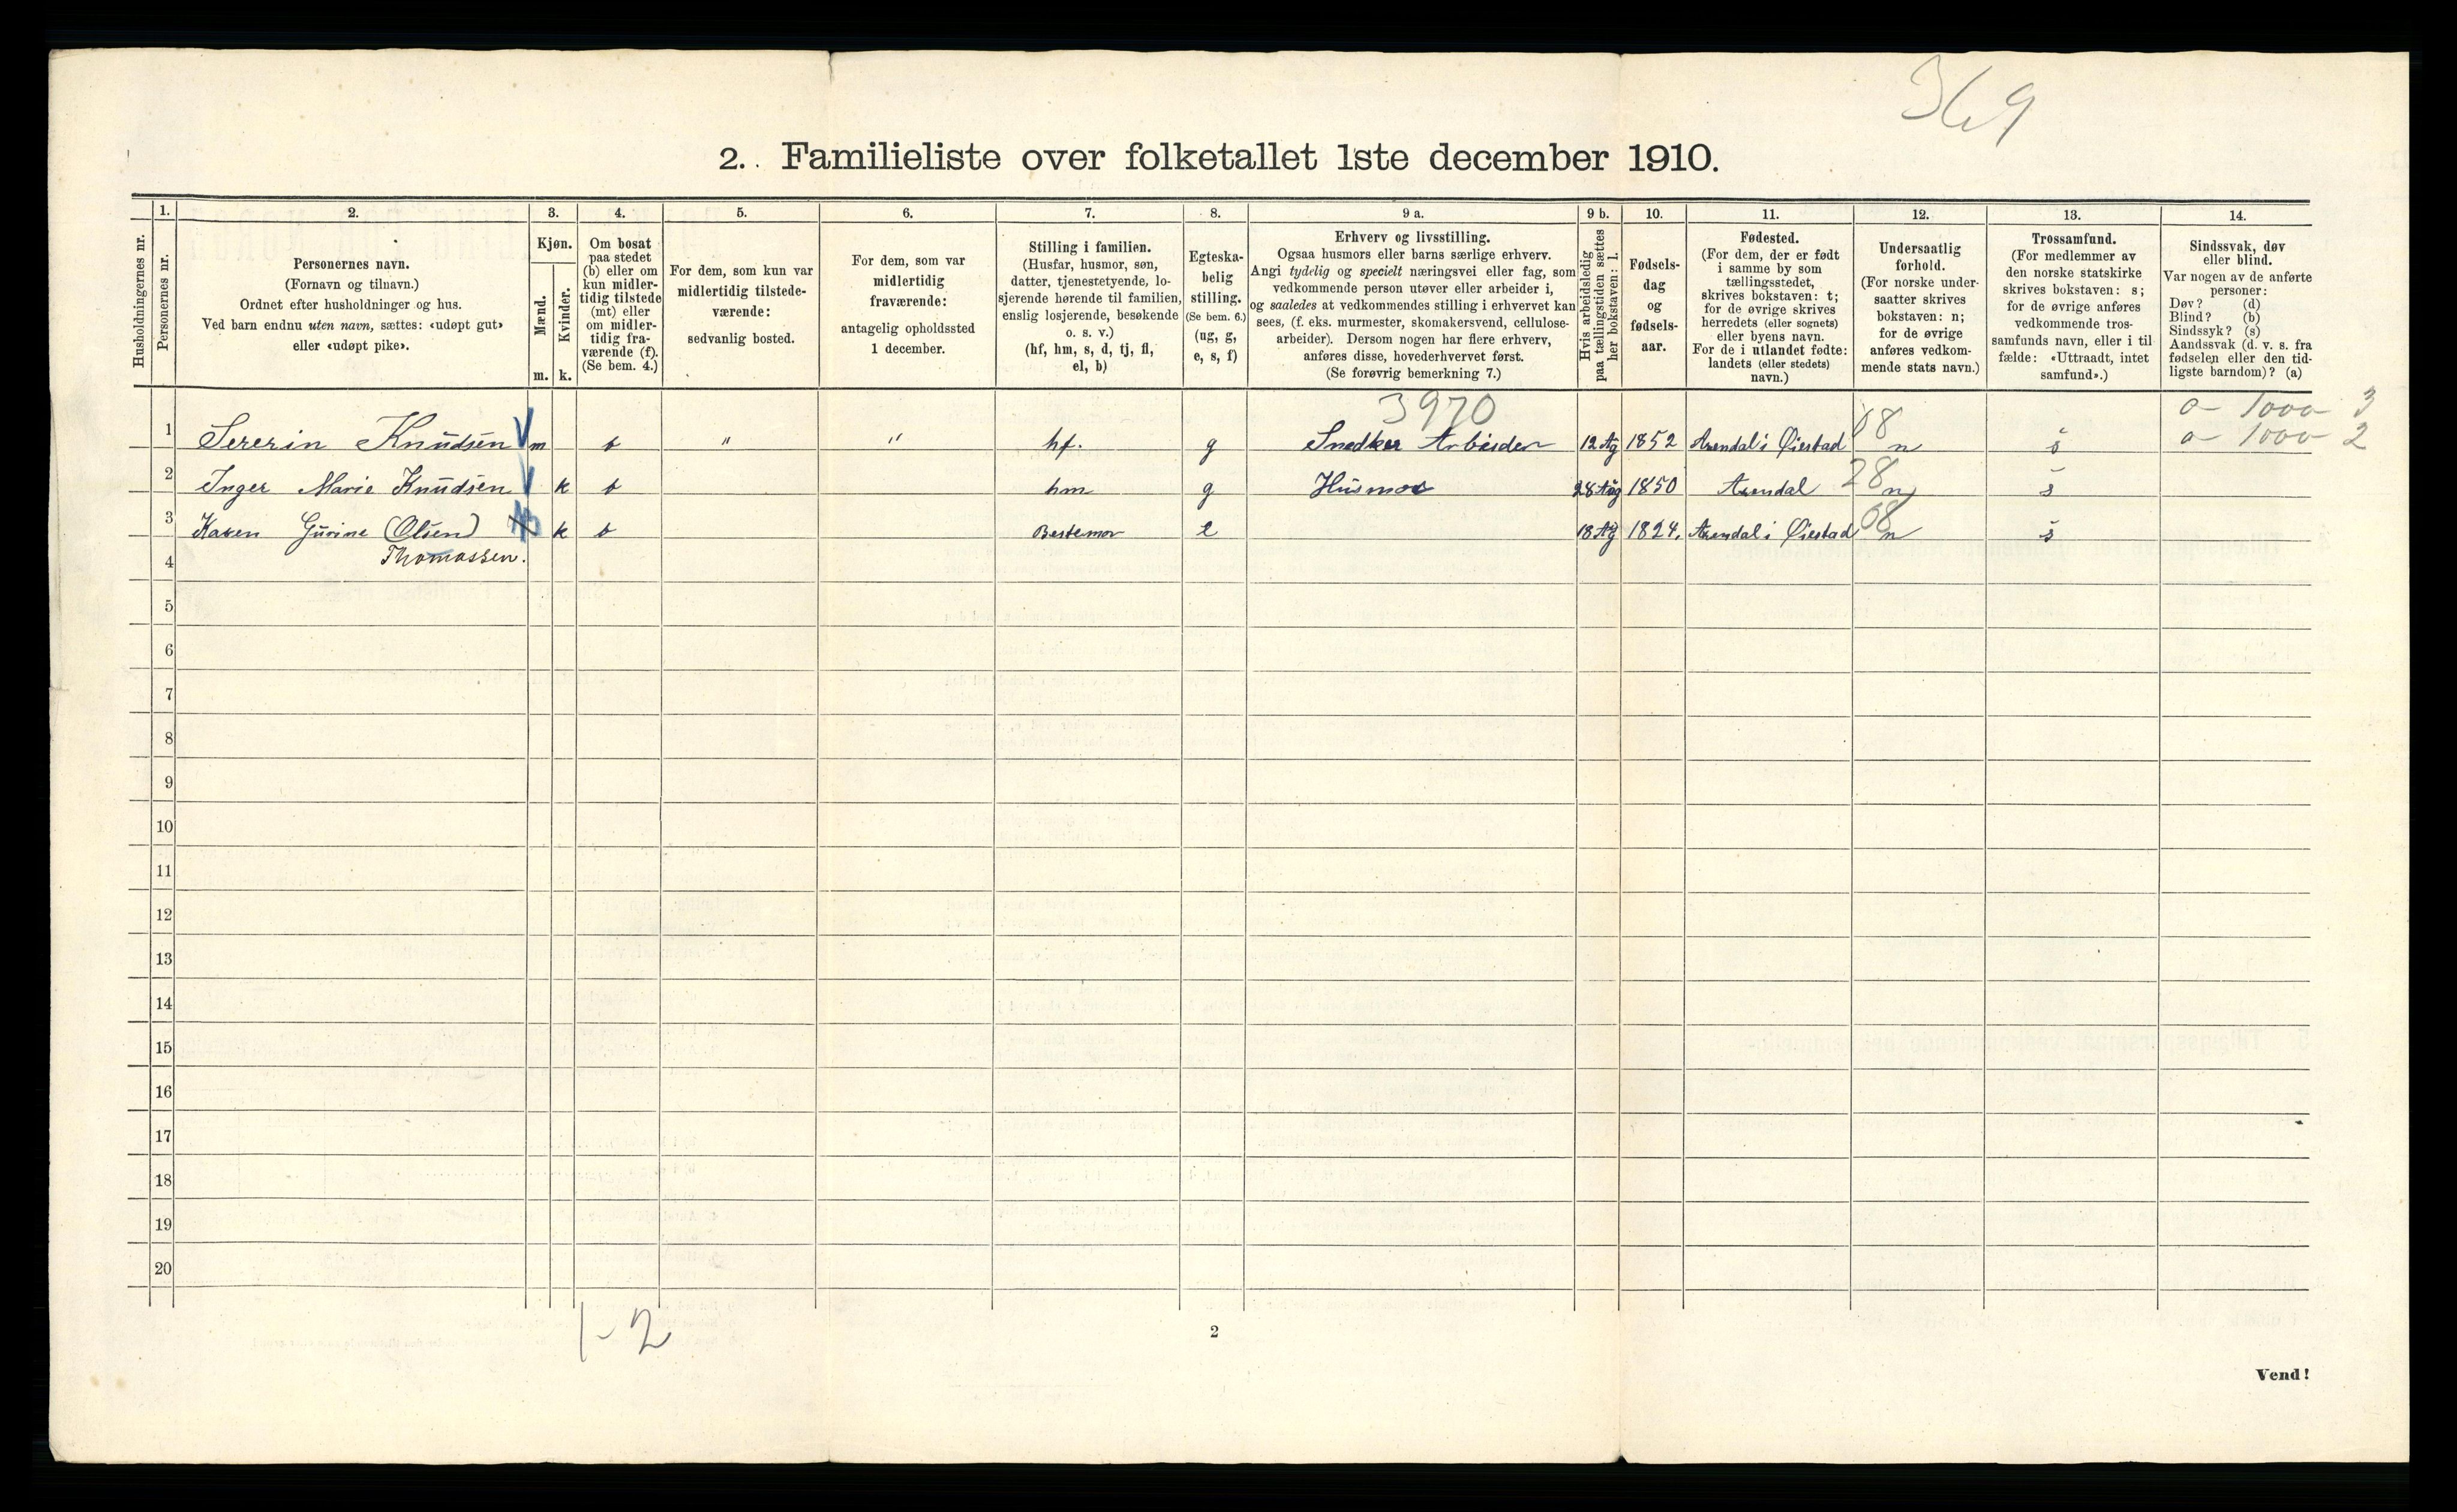 369
2. Familieliste over folketallet 1ste december 1910.
Husholdningernes nr.
1.
Personernes nr.
2.
Personernes navn.
(Fornavn og tilnavn.)
Ordnet efter husholdninger og hus.
Ved barn endnu uten navn, sættes: «udøpt gut»
eller «udøpt pike».
3.
Kjøn.
Mænd.
Kvinder.
m. k.
4.
Om bosat
paa stedet
(b) eller om
kun midler-
tidig tilstede
(mt) eller
om midler-
tidig fra-
værende (f).
(Se bem. 4.)
5.
For dem, som kun var
midlertidig tilstede-
værende:
sedvanlig bosted.
6.
For dem, som var
midlertidig
fraværende:
antagelig opholdssted
1 december.
7.
Stilling i familien.
(Husfar, husmor, søn,
datter, tjenestetyende, lo-
sjerende hørende til familien,
enslig losjerende, besøkende
o. s. v.)
(hf, hm, s, d, tj, fl,
el, b)
8.
Egteska-
belig
stilling.
(Se bem. 6.)
(ug, g,
e, s, f)
9 a.
Erhverv og livsstilling.
Ogsaa husmors eller barns særlige erhverv.
Angi tydelig og specielt næringsvei eller fag, som
vedkommende person utøver eller arbeider i,
og saaledes at vedkommendes stilling i erhvervet kan
sees, (f. eks. murmester, skomakersvend, cellulose-
arbeider). Dersom nogen har flere erhverv,
anføres disse, hovederhvervet først.
(Se forøvrig bemerkning 7.)
9 b.
Hvis arbeidsledig
paa tællingstiden sættes
her bokstaven: l.
10.
Fødsels-
dag
og
fødsels-
aar.
11.
Fødested.
(For dem, der er født
i samme by som
tællingsstedet,
skrives bokstaven: t;
for de øvrige skrives
herredets (eller sognets)
eller byens navn.
For de i utlandet fødte:
landets (eller stedets)
navn.)
12.
Undersaatlig
forhold.
(For norske under-
saatter skrives
bokstaven: n;
for de øvrige
anføres vedkom-
mende stats navn.)
13.
Trossamfund.
(For medlemmer av
den norske statskirke
skrives bokstaven: s;
for de øvrige anføres
vedkommende tros-
samfunds navn, eller i til
fælde: «Uttraadt, intet
samfund».)
14.
Sindssvak, døv
eller blind.
Var nogen av de anførte
personer:
Døv? (d)
Blind? (b)
Sindssyk? (s)
Aandssvak (d. v. s. fra
fødselen eller den tid-
ligste barndom)? (a)
3970
0 - 1000 - 3
0 - 1000 - 2
1 Sererin Knudsen m b " " hf. g Snedker Arbeider 12 Ag 1852 Arendal i Øiestad n s
2 Inger Marie Knudsen k b hm g Husmor 28 Aug 1850 Arendal 28 n s
3 Karen Gurine (Olsen) k b Bestemor e 18 Ag 1824. Arendal i Øiestad n s
Thomassen.
4
5
6
7
8
9
10
11
12
13
14
15
16
17
18
19
20
1 - 2
2
Vend!